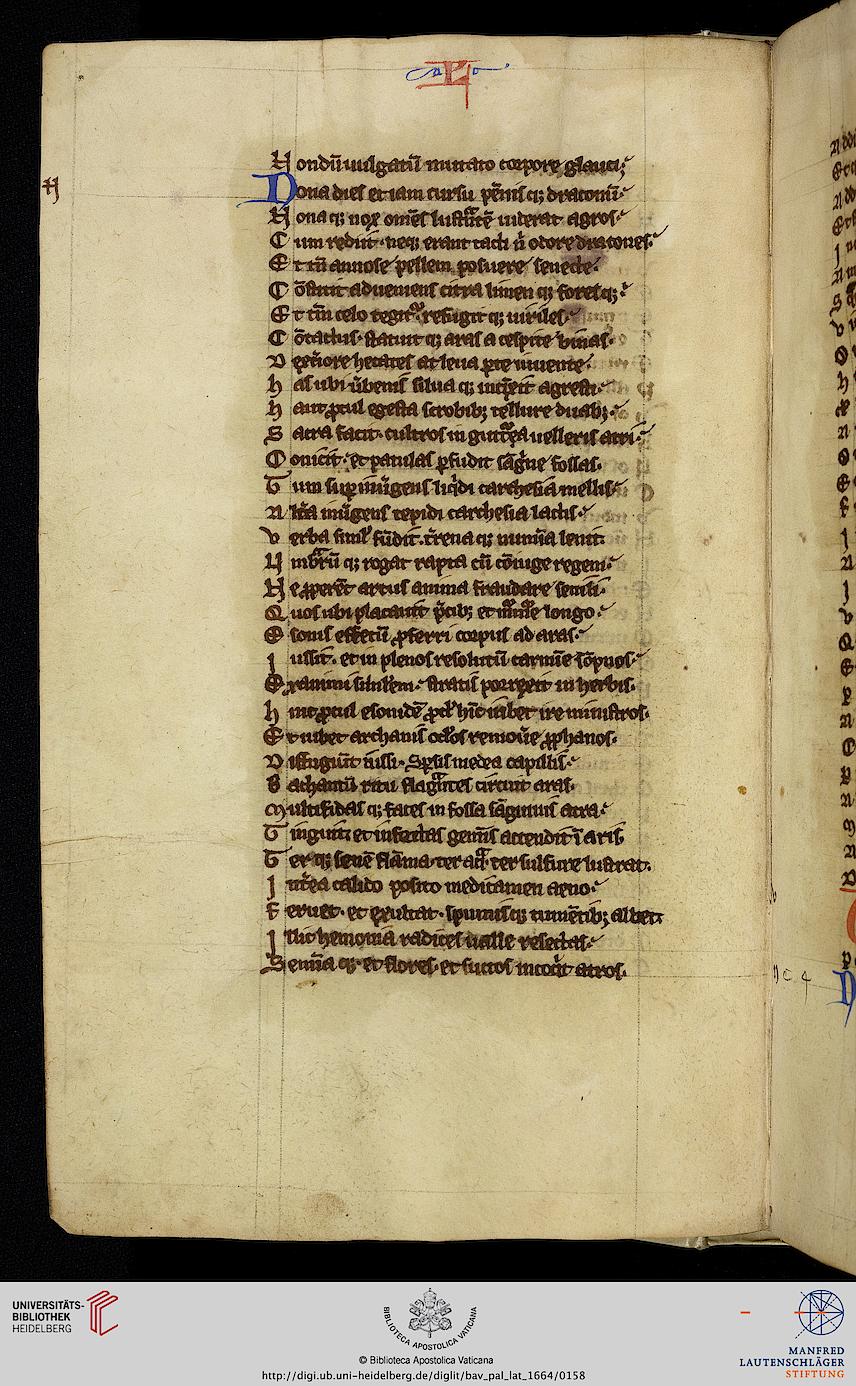 L
N
Nondū uulgatū mutato corpore glauci
Dona dies et iam cursu pēnisq; draconū
Nonaq; nox omēs lustrātē uiderat agros
Cum rediit neq; erant tacti ñ odore dracones
Et tñ annose pellem posuere senecte
Cōstitit adueniens citra limen q; foresq;
Et tm̄ celo tegitur refugit q; uiriles
Cōtactus statuit q; aras a cespite binas
Dexteriore hecates at leua parte iuuente
has ubi ūbenis silua q; incīxit agresti
haut procul egesta scrobib; tellure duab;
Sacra facit cultros in guttura uelleris atri
Conicit et patulas pfudit sāgine fossas
Tum sup inūgens liqidi carchesia mellis
Altera inūgens tepidi carchesia lactis
Verba simul fūdit trena q; numina lenit
Umbrarū q; rogat rapta cū cōiuge regem
Ne properēt artus anima fraudare senili
Quos ubi placauit pcib; et murmure longo
Esonis effetū pferri corpus ad aras
iussit et in plenos resolutū carmīe sōpnos
Exanimi similem stratis porrexit in herbis
hinc procul esonidē procul hīc iubet ire ministros
Et iubet archanis oclos remoūe prophanos
Diffugiūt iussi Sparsis medea capillis
Bachantū ritu flagrātes circuit aras
Multifidas q; faces in fossa sāguinis atra
Tinguit et infectas geminis accendit ī aris
Ter q; senē flāma ter aqua ter sulfure lustrat
Interea calido posito medicamen aeno
Feruet et exultat spumisq; tumētib; albet
Illic hemonia radices ualle resectas
Semina q; et flores et sucos incoquit atros
UNIVERSITÄTS-
BIBLIOTHEK
HEIDELBERG
BIBLIOTECA APOSTOLICA VATICANA
© Biblioteca Apostolica Vaticana
http://digi.ub.uni-heidelberg.de/diglit/bav_pal_lat_1664/0158
MANFRED
LAUTENSCHLÄGER
STIFTUNG